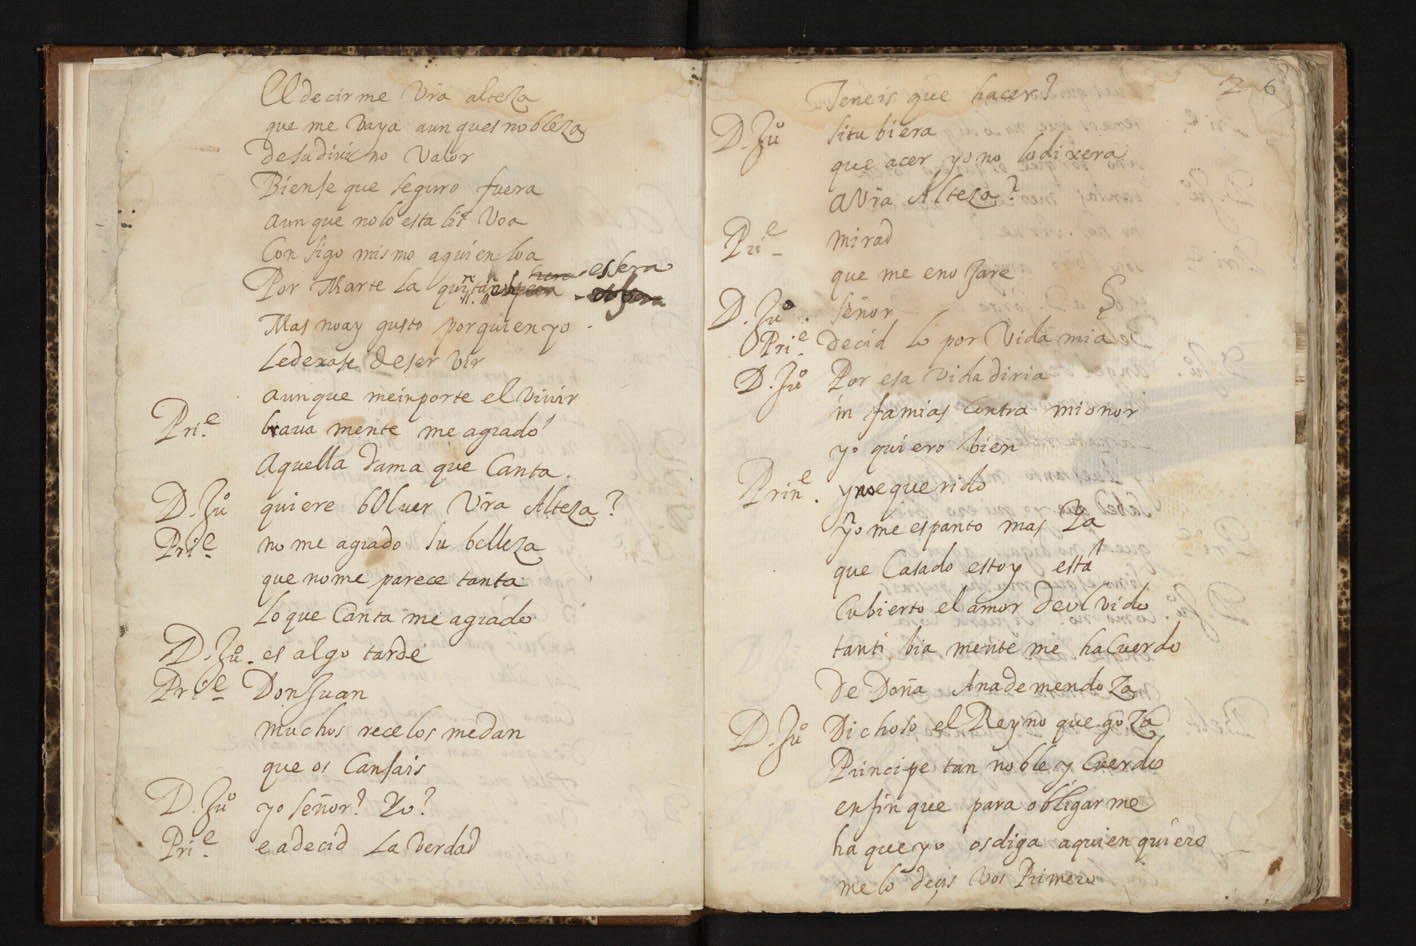 El decirme Vra alteza
que me vaya aunques nobleza
de su divino Valor
Biense que seguro fuera
aunque no lo esta
Consigo mismo aquien loa
Por Marte la essera
Mas noay gusto porquien yo
Ledexase deser vir
aunque meinporte el Vivir
Pri.e brava mente me agrado
Aquella dama que Canta.
D. Juo quiere bolver Vra Alteza?
Pri.e no me agrado su belleza
que nome parece tanta
lo que Canta me agrado
D. Juo. es algo tarde
Pri.e Don Juan
muchos recelos medan
que os Cansais
D. Juo yo señor? Yo?
Pri.e ea decid La Verdad
2 6
Teneis que hacer?
D. Juo situbiera
que acer yo no lo dixera
a Vra Alteza?
Pri.e mirad
que me enojare
D. Juo. señor
Pri.e decid lo por Vida mia
D. Juo Por esa vida diria
infamias Contra mi onor
yo quiero bien
Prin.e y no e querido
yo me espanto mas ya
que Casado estoy está
Cubierto el amor de olvido
tanti bia mente me ha Cuerdo
De Doña Anademendoza
D. Juo Dichoso el Reyno que goza
Principe tan noble y Cuerdo
en fin que para obligarme
ha que yo os diga aquien quiero
me lo deçis Vos Primero